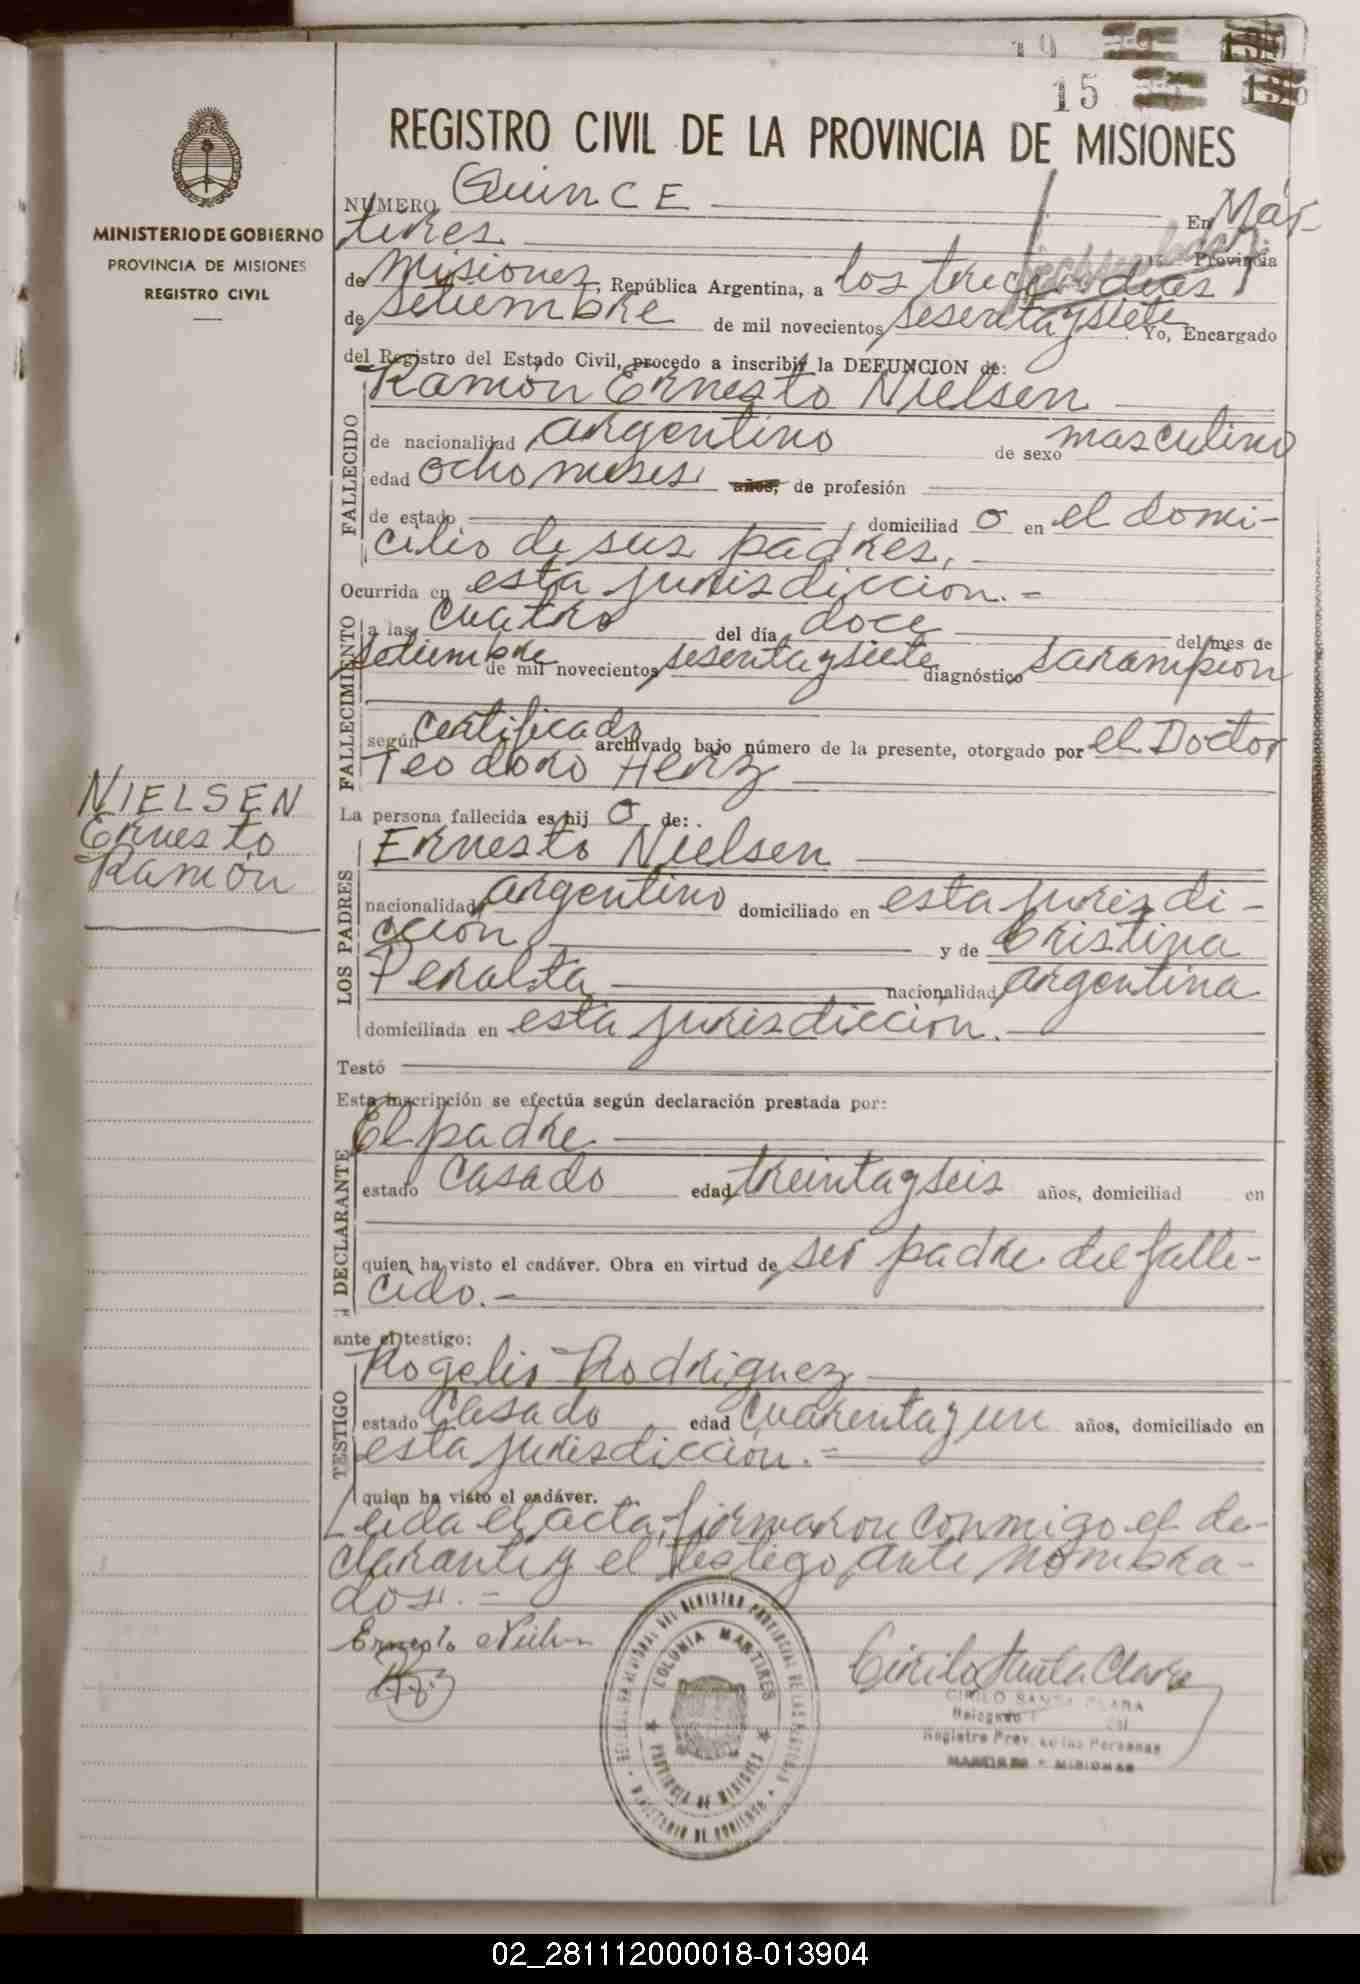 15
REGISTRO CIVIL DE LA PROVINCIA DE MISIONES
MINISTERIO DE GOBIERNO
PROVINCIA DE MISIONES
REGISTRO CIVIL
NIELSEN
Ernesto
Ramón
NÚMERO Quince En Már-
tires Provincia
de Misiones, República Argentina, a los trece días
de setiembre de mil novecientos sesenta y siete Yo, Encargado
del Registro del Estado Civil, procedo a inscribir la DEFUNCION de:
FALLECIDO
Ramón Ernesto Nielsen
de nacionalidad argentino de sexo masculino
edad ocho meses años, de profesión
de estado domiciliad o en el domi-
cilio de sus padres,
Ocurrida en esta jurisdicción.-
FALLECIMIENTO
a las cuatro del día doce del mes de
setiembre de mil novecientos sesenta y siete diagnóstico sarampión
según certificado archivado bajo número de la presente, otorgado por el Doctor
Teodoro
La persona fallecida es hij o de:
LOS PADRES
Ernesto Nielsen
nacionalidad argentino domiciliado en esta jurisdi-
cción y de Cristina
Peralta nacionalidad argentina
domiciliada en esta jurisdicción.
Testó
Esta inscripción se efectúa según declaración prestada por:
DECLARANTE
El padre
estado casado edad treinta y seis años, domiciliad en
quien ha visto el cadáver. Obra en virtud de ser padre del falle-
cido.-
ante el testigo:
TESTIGO
Rogelio Rodriguez
estado casado edad cuarenta y un años, domiciliado en
esta jurisdicción.=
quien ha visto el cadáver.
Leida el acta, firmaron conmigo el de-
clarante y el testigo ante nombra-
dos.-
Ernesto Nielsen
COLONIA MARTIRES
PROVINCIA DE MISIONES
MINISTERIO DE GOBIERNO
Cirilo Santa Clara
CIRILO SANTA CLARA
Delegado
Registro Prov. de las Personas
MARTIRES - MISIONES
02_281112000018-013904